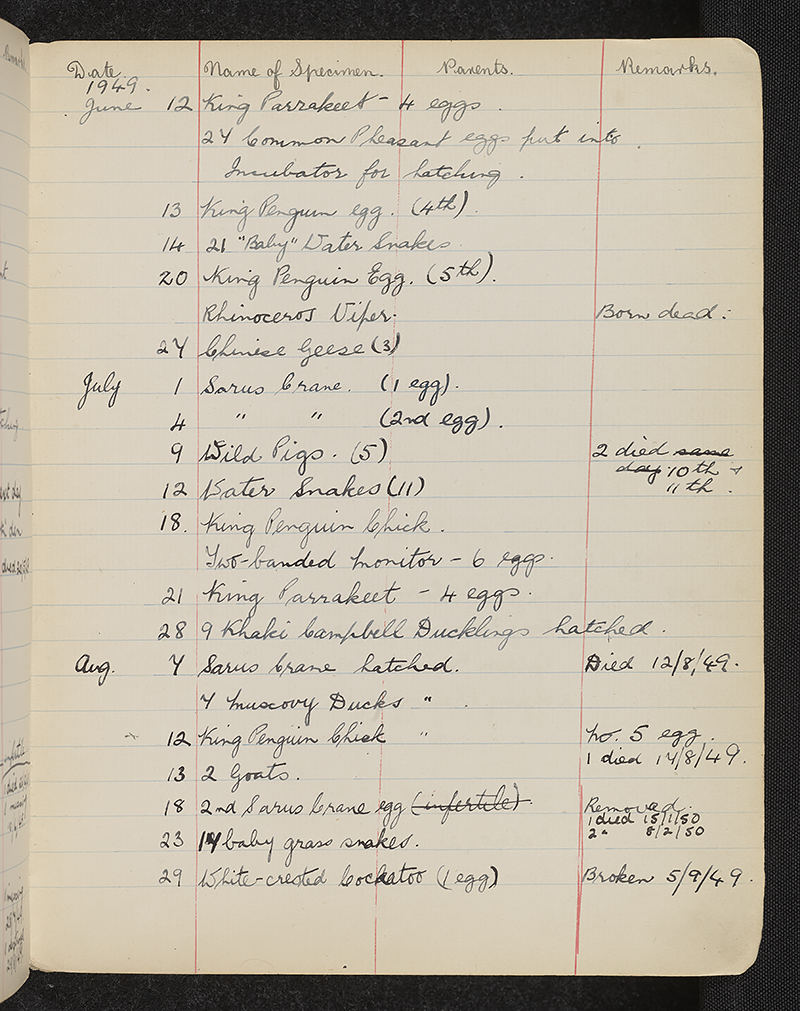 Date. Name of Specimen. Parents. Remarks.
1949.
June 12 King Parrakeet - 4 eggs.
24 Common Pheasant eggs put into
Incubator for hatching.
13 King Penguin egg. (4th).
14 21 "Baby" Water Snakes.
20 King Penguin Egg. (5th).
Rhinoceros Viper. Born dead:
27 Chinese Geese (3)
July 1 Sarus Crane. (1 egg).
4 " " (2nd egg).
9 Wild Pigs. (5) 2 died same
day 10th +
11th.
12 Water Snakes (11)
18. King Penguin Chick.
Two-banded monitor - 6 eggs.
21 King Parrakeet - 4 eggs.
28 9 Khaki Campbell Ducklings hatched.
Aug. 7 Sarus Crane hatched. Died 12/8/49.
7 Muscovy Ducks "
12 King Penguin Chick " No. 5 egg.
1 died 14/8/49.
13 2 Goats.
18 2nd Sarus Crane egg (infertile). Removed.
1 died 15/1/50
23 14 baby grass snakes. 2 " 8/2/50
29 White-crested Cockatoo (1 egg) Broken 5/9/49.